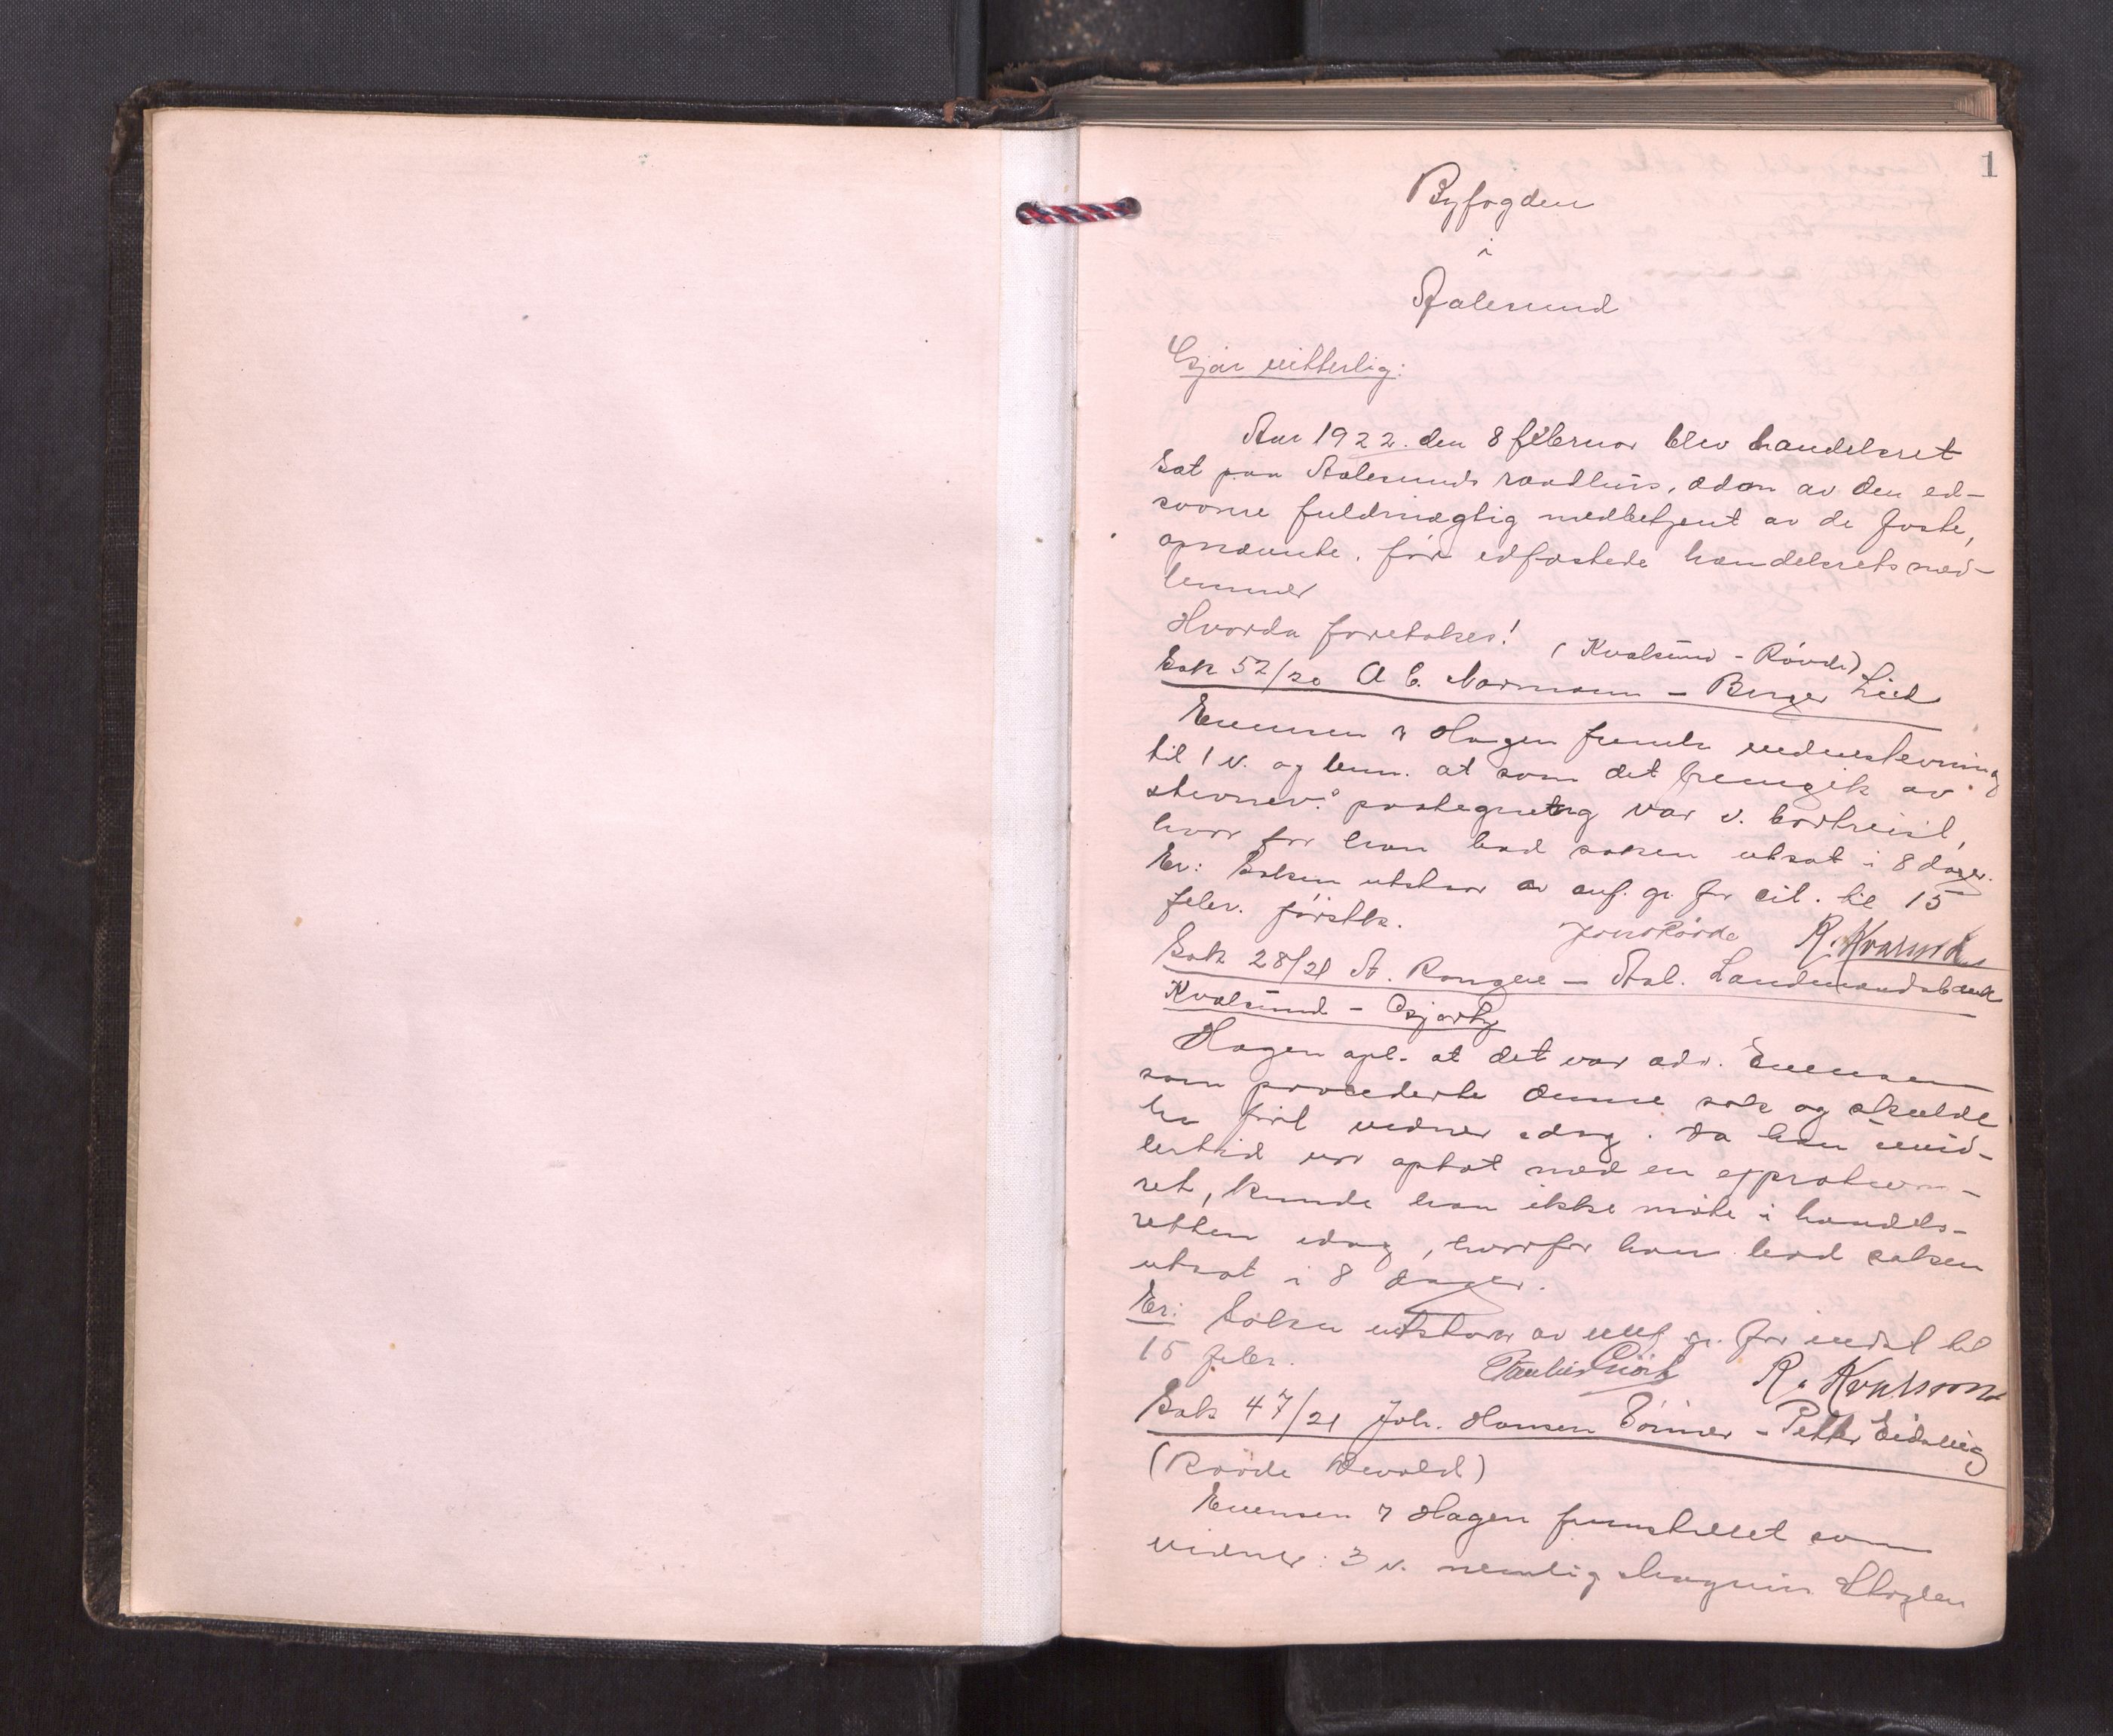 1
Byfogden
i
Aalesund
Gjør vitterlig:
Aar 1922. den 8 februar blev handelsret
sat paa Aalesunds raadhus, adm av den ed-
svorne fuldmægtig medbetjent av de faste,
opnævnte, før edfæstede handelsretsmed-
lemmer
Hvorda foretokes!
(Kvalsund - Røvde)
Sak 52/20 A C. Normann - Berger Lied
Evensen v Hagen freml. vidnestevning
til 1 v. og bem. at som det fremgik av
stevnev.s paategning var v. bortreist,
hvorfor han bad saken utsat i 8 dager.
Er: Saken utstaar av anf. gr. for cit. til 15
febr. førstk.
Jens Røvde R. Kvalsund
Sak 28/21 A. Rongve - Aal. Landmandsbank
Kvalsund - Gjørtz
Hagen opl. at det var adv. Evensen
som procederte denne sak og skulde
ha ført vidner idag. Da han imid-
lertid var optat med en expropriations-
ret, kunde han ikke møte i handels-
retten idag, hvorfor han bad saken
utsat i 8 dager.
Er: Saken utstaar av anf. gr. for indst til
15 febr.
R. Kvalsund
Sak 47/21 Joh. Hansen Sønner - Petter Eidsvig
(Røvde Devold)
Evensen v Hagen fremstillet som
vidner: 3 v. nemlig Magnus